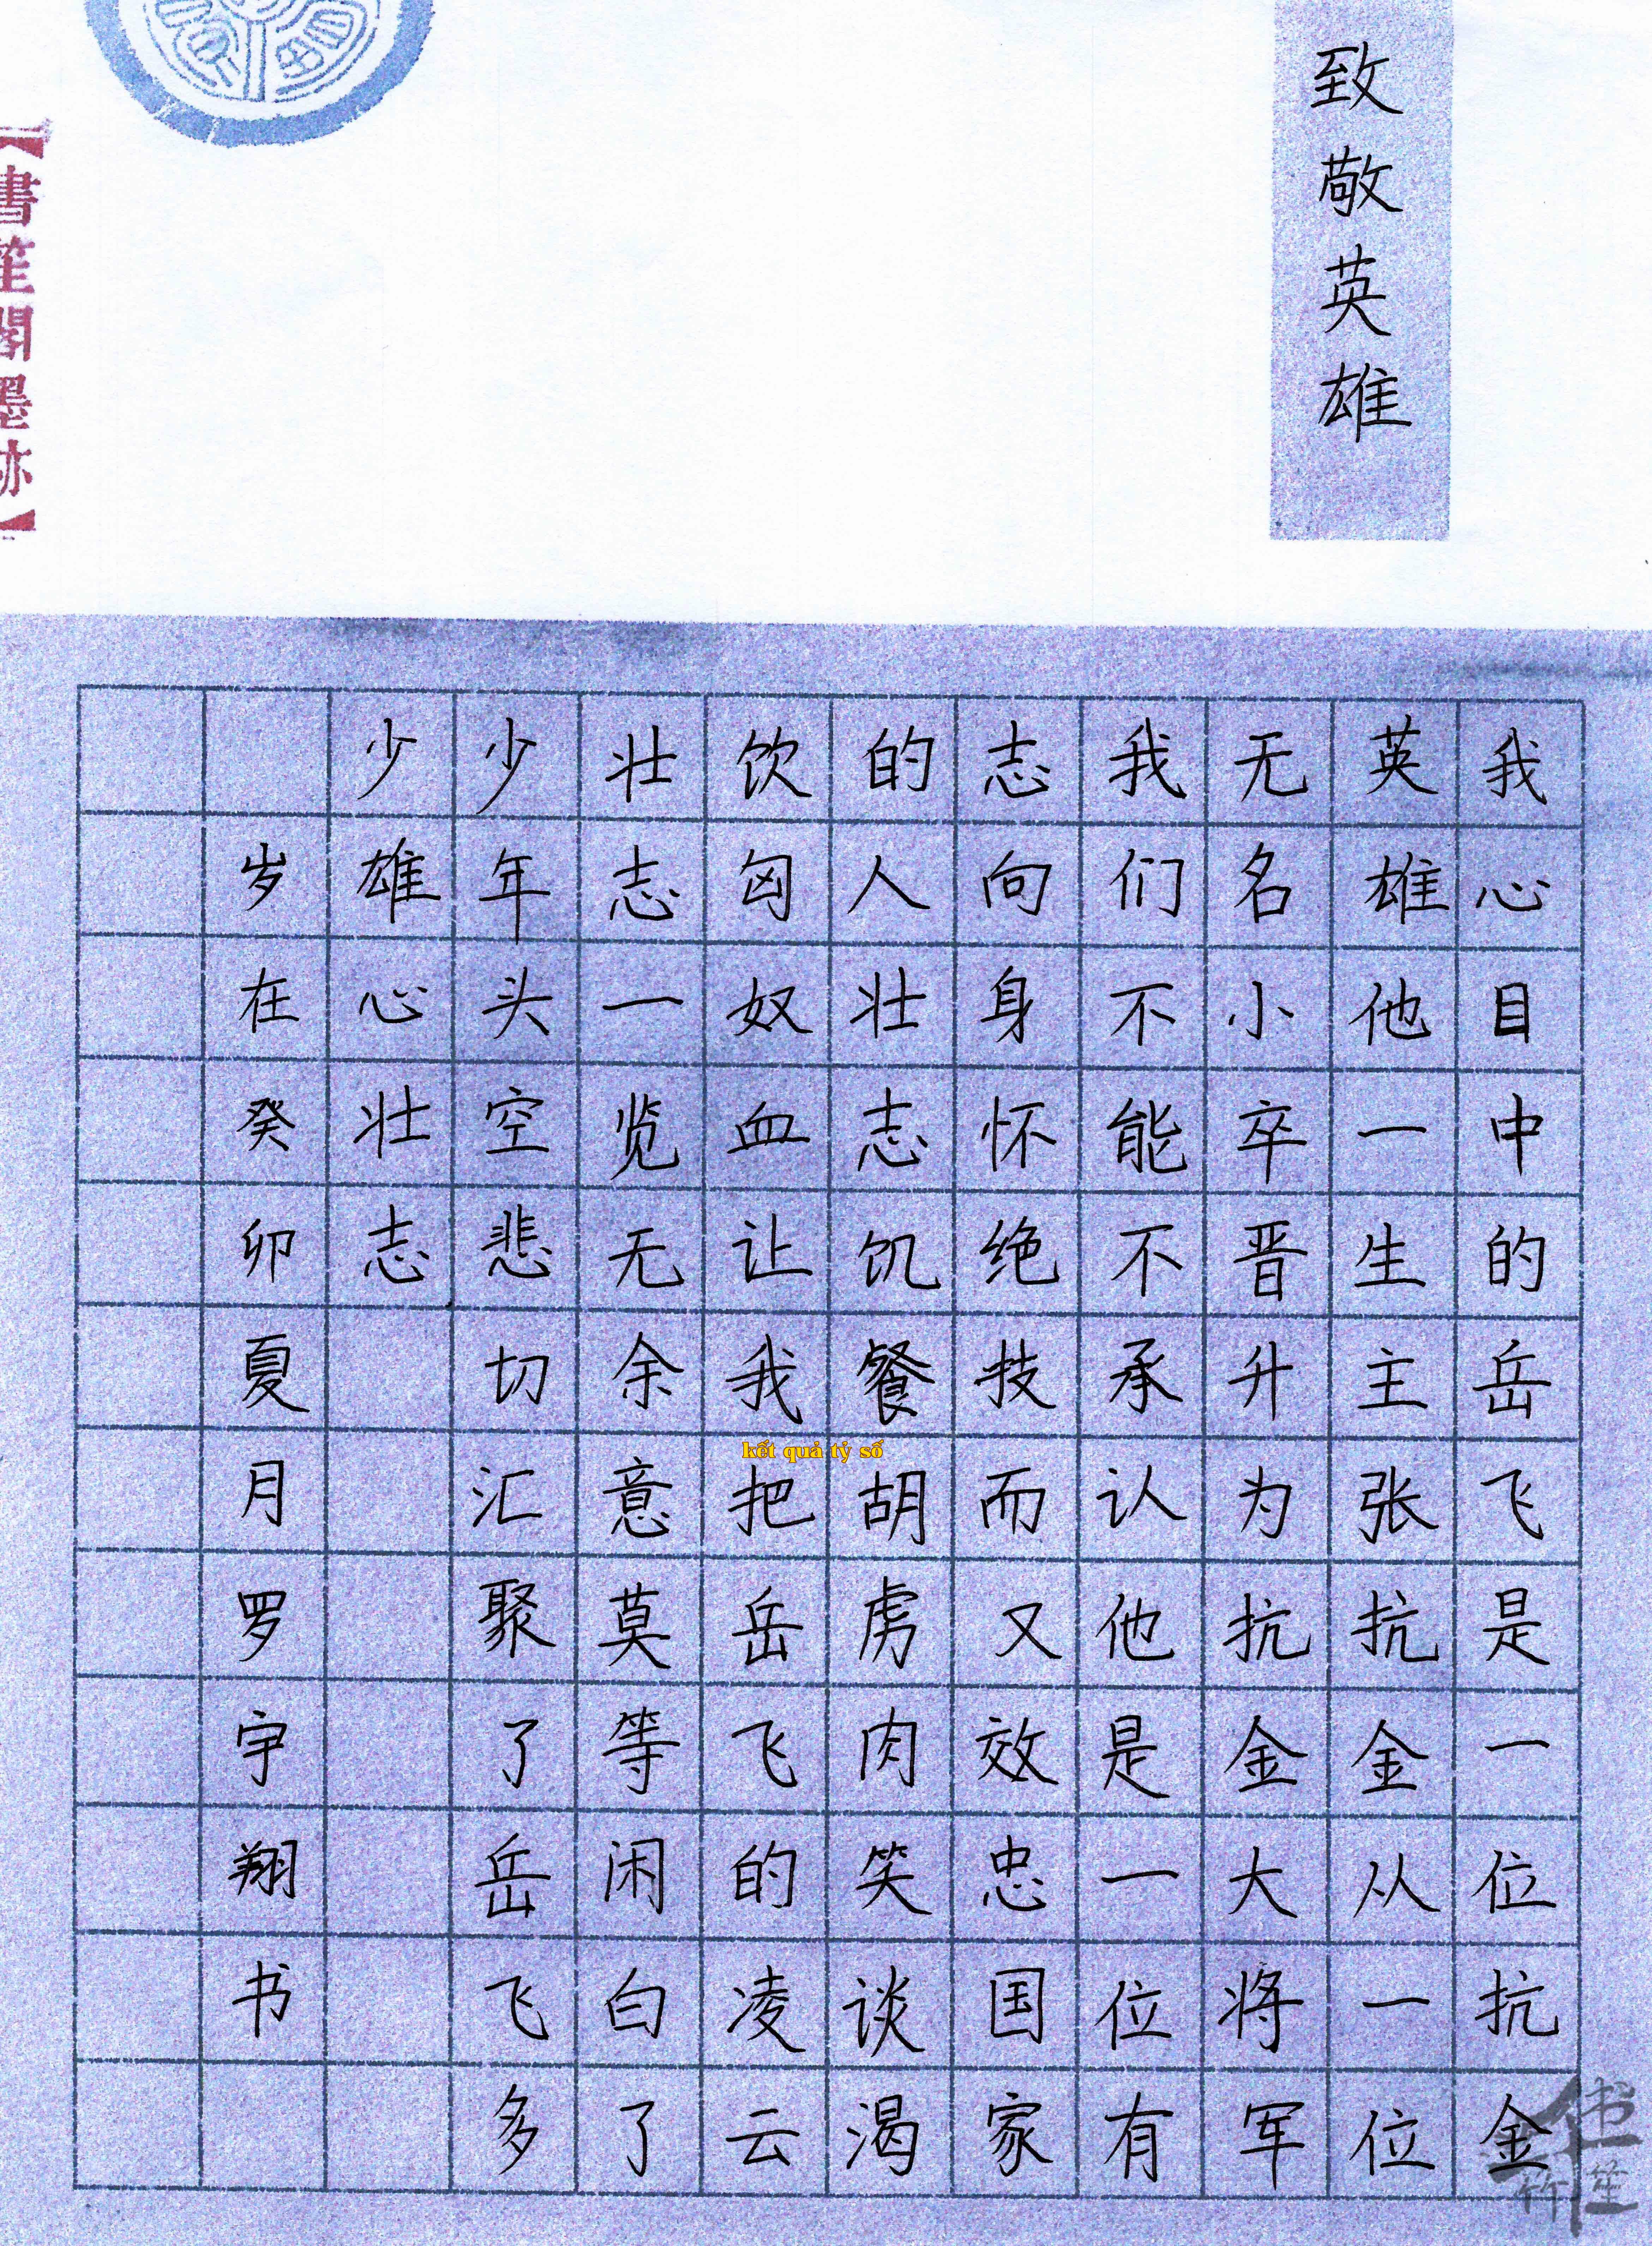 致敬英雄
我心目中的岳飞是一位抗金
英雄他一生主张抗金从一位
无名小卒晋升为抗金大将军
我们不能不承认他是一位有
志向身怀绝技而又效忠国家
的人壮志饥餐胡虏肉笑谈渴
饮匈奴血让我把岳飞的凌云
壮志一览无余意莫等闲白了
少年头空悲切汇聚了岳飞多
少雄心壮志
岁在癸卯夏月罗宇翔书
【書笙閣墨跡】
kết quả tỷ số
书笙